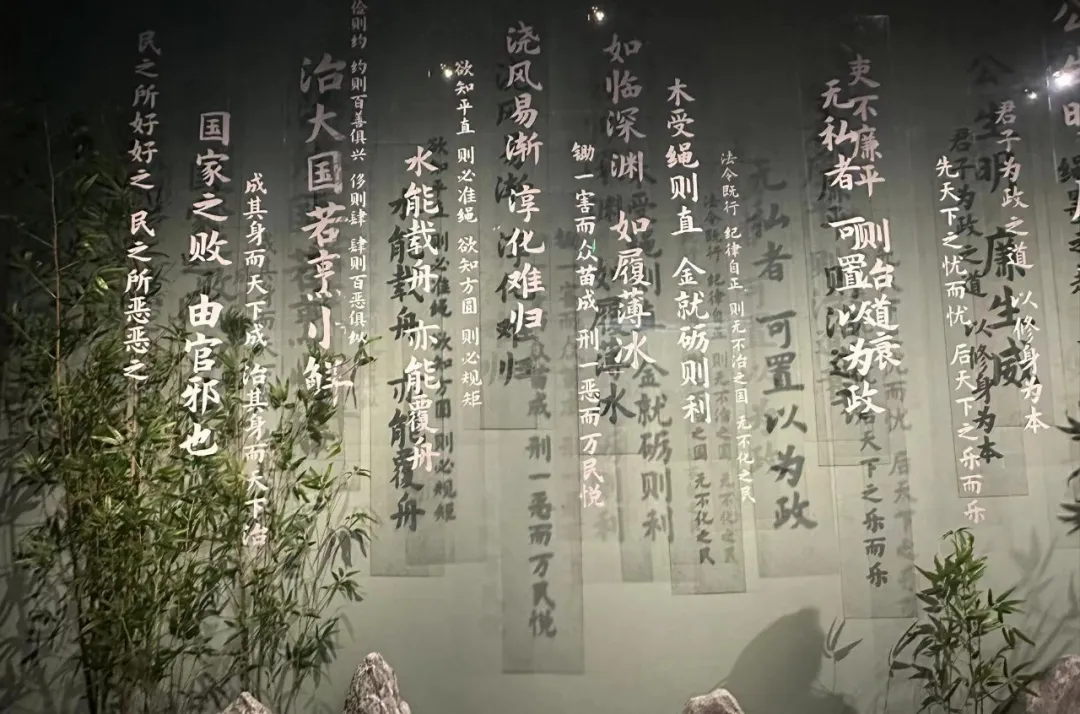 公生明
君子为政之道 以修身为本
先天下之忧而忧 后天下之乐而乐
吏不廉平 则治道衰
无私者 可置以为政
法令既行 纪律自正 则无不治之国 无不化之民
木受绳则直 金就砺则利
如临深渊 如履薄冰
锄一害而众苗成 刑一恶而万民悦
浇风易渐 淳化难归
欲知平直 则必准绳 欲知方圆 则必规矩
水能载舟 亦能覆舟
俭则约 约则百善俱兴 侈则肆 肆则百恶俱纵
治大国若烹小鲜
成其身而天下成 治其身而天下治
国家之败 由官邪也
民之所好好之 民之所恶恶之